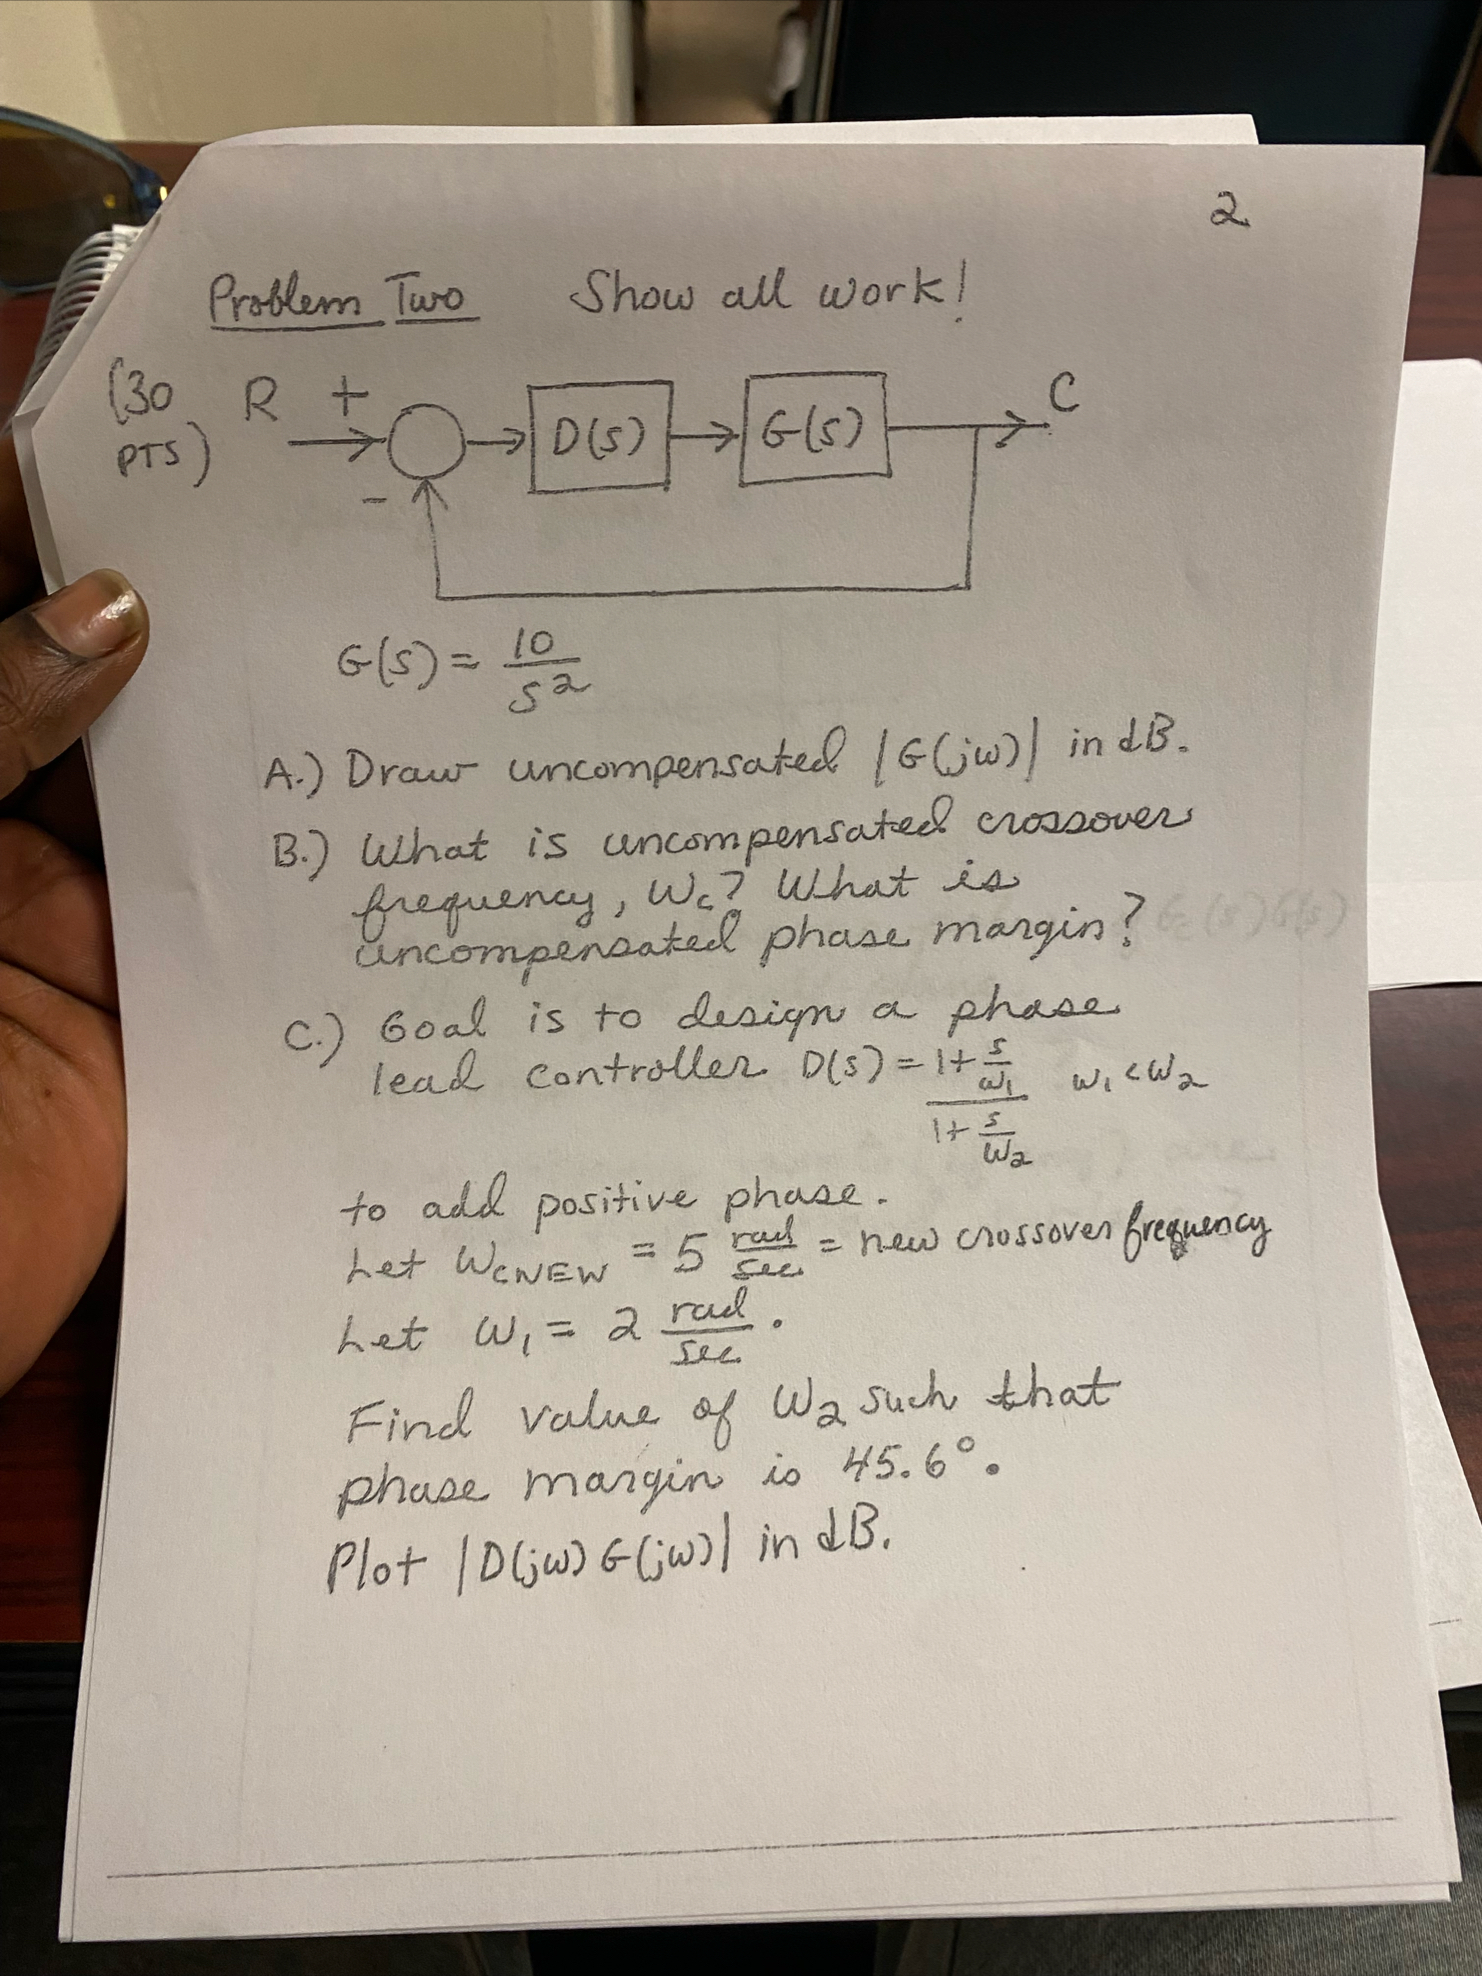 2
Problem Two Show all work!
(30 PTS) R + D(s) G(s) C
-
G(s) = 10/s²
A.) Draw uncompensated |G(jω)| in dB.
B.) What is uncompensated crossover
frequency, ωc? What is
uncompensated phase margin?
C.) Goal is to design a phase
lead controller D(s) = (1+s/ω₁)/(1+s/ω₂) ω₁<ω₂
to add positive phase.
Let ωCNEW = 5 rad/sec = new crossover frequency
Let ω₁ = 2 rad/sec.
Find value of ω₂ such that
phase margin is 45.6°.
Plot |D(jω)G(jω)| in dB.